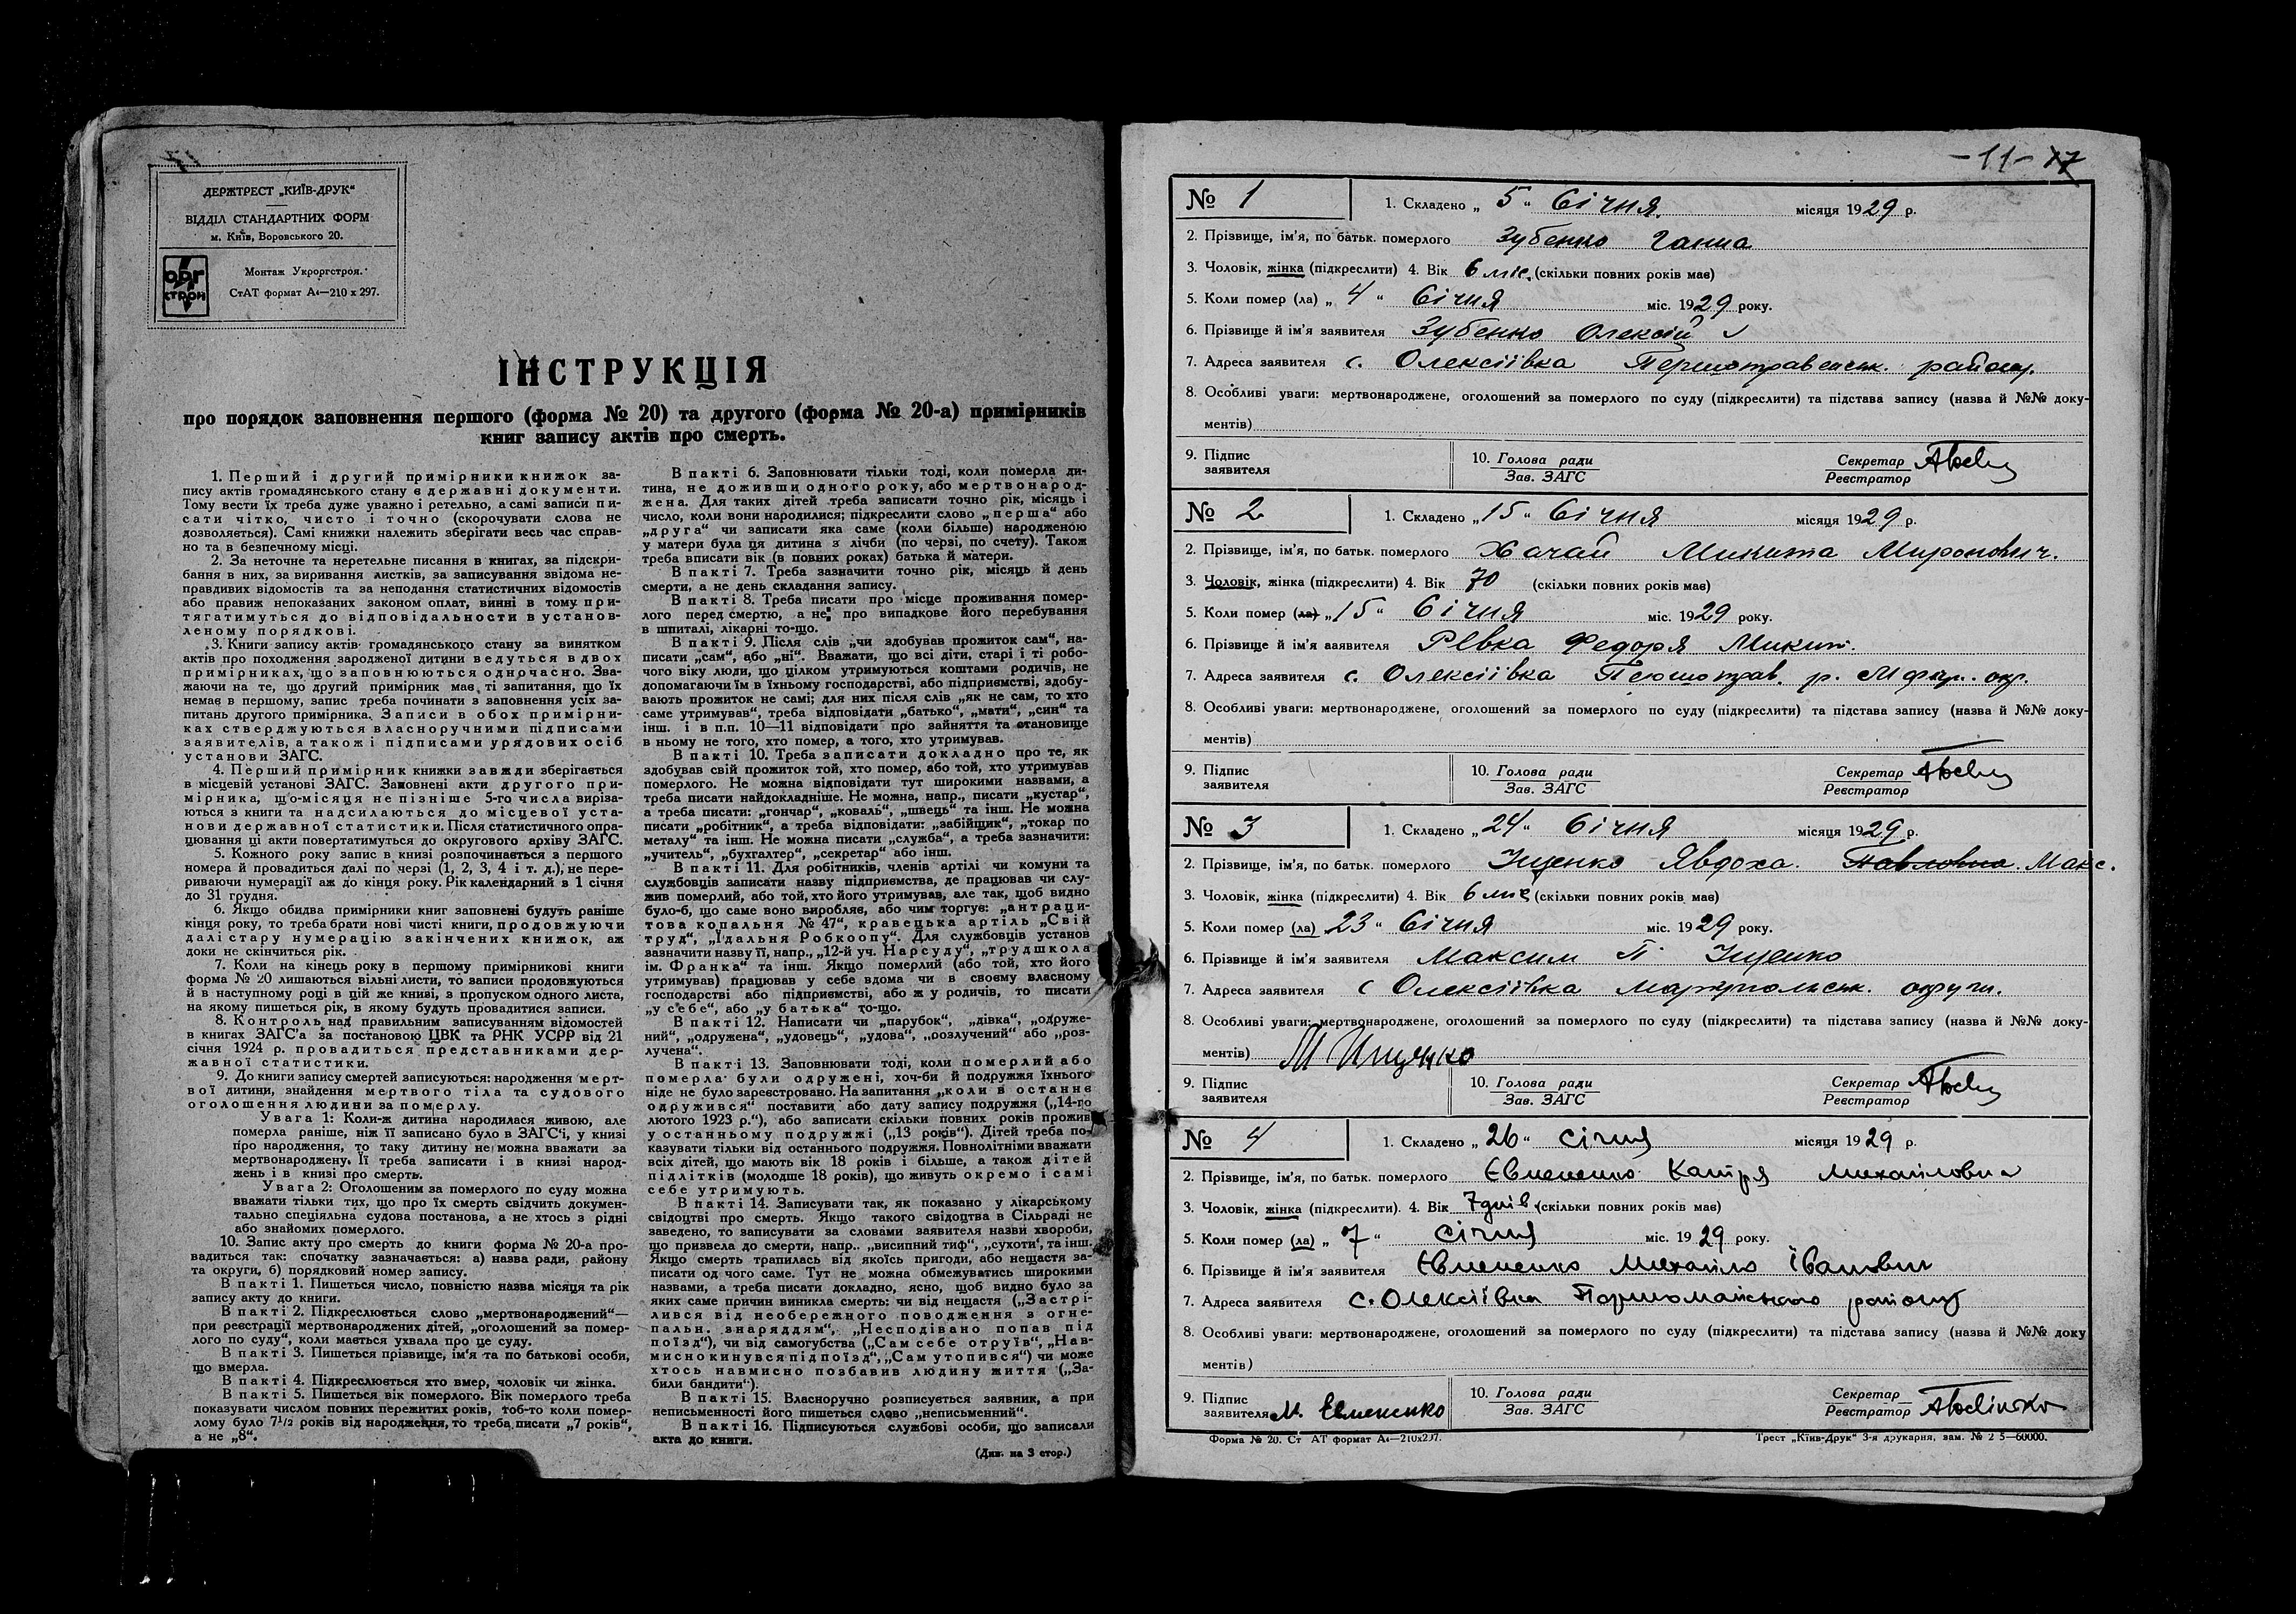 ДЕРЖТРЕСТ „КИЇВ-ДРУК“
ВІДДІЛ СТАНДАРТНИХ ФОРМ
м. Київ, Воровського 20.
ОРГ
СТРОЙ
Монтаж Укроргстроя.
СтАТ формат А₄—210 x 297.
ІНСТРУКЦІЯ
про порядок заповнення першого (форма № 20) та другого (форма № 20-а) примірників
книг запису актів про смерть.
1. Перший і другий примірники книжок за-
пису актів громадянського стану є державні документи.
Тому вести їх треба дуже уважно і ретельно, а самі записи пи-
сати чітко, чисто і точно (скорочувати слова не
дозволяється). Самі книжки належить зберігати весь час справ-
но та в безпечному місці.
2. За неточне та неретельне писання в книгах, за підскри-
бання в них, за виривання листків, за записування звідома не-
правдивих відомостів та за неподання статистичних відомостів
або правиж непоказаних законом оплат, винні в тому при-
тягатимуться до відповідальности в установ-
леному порядкові.
3. Книги запису актів громадянського стану за винятком
актів про походження зародженої дитини ведуться в двох
примірниках, що заповнюються одночасно. Зва-
жаючи на те, що другий примірник має ті запитання, що їх
немає в першому, запис треба починати з заповнення усіх за-
питань другого примірника. Записи в обох примірни-
ках стверджуються власноручними підписами
заявителів, а також і підписами урядових осіб
установи ЗАГС.
4. Перший примірник книжки завжди зберігається
в місцевій установі ЗАГС. Заповнені акти другого при-
мірника, що-місяця не пізніше 5-го числа виріза-
ються з книги та надсилаються до місцевої уста-
нови державної статистики. Після статистичного опра-
цювання ці акти повертатимуться до округового архіву ЗАГС.
5. Кожного року запис в книзі розпочинається з першого
номера й провадиться далі по черзі (1, 2, 3, 4 і т. д.), не пере-
риваючи нумерації аж до кінця року. Рік календарний в 1 січня
до 31 грудня.
6. Якщо обидва примірники книг заповнені будуть раніше
кінця року, то треба брати нові чисті книги, продовжуючи
далі стару нумерацію закінчених книжок, аж
доки не скінчиться рік.
7. Коли на кінець року в першому примірникові книги
форма № 20 лишаються вільні листи, то записи продовжуються
й в наступному році в цій же книзі, з пропуском одного листа,
на якому пишеться рік, в якому будуть провадитися записи.
8. Контроль над правильним записуванням відомостей
в книгах ЗАГС'а за постановою ЦВК та РНК УСРР від 21
січня 1924 р. провадиться представниками дер-
жавної статистики.
9. До книги запису смертей записуються: народження мерт-
вої дитини, знайдення мертвого тіла та судового
оголошення людини за померлу.
Увага 1: Коли-ж дитина народилася живою, але
померла раніше, ніж її записано було в ЗАГС'і, у книзі
про народження, то таку дитину не можна вважати за
мертвонароджену. Її треба записати і в книзі народ-
жень і в книзі про смерть.
Увага 2: Оголошеним за померлого по суду можна
вважати тільки тих, що про їх смерть свідчить докумен-
тально спеціяльна судова постанова, а не хтось з рідні
або знайомих померлого.
10. Запис акту про смерть до книги форма № 20-а про-
вадиться так: спочатку зазначається: а) назва ради, району
та округи, б) порядковий номер запису.
В пакті 1. Пишеться число, повністю назва місяця та рік
запису акту до книги.
В пакті 2. Підкреслюється слово „мертвонароджений“—
при реєстрації мертвонароджених дітей, „оголошений за помер-
лого по суду“, коли мається ухвала про це суду.
В пакті 3. Пишеться прізвище, ім'я та по батькові особи,
що вмерла.
В пакті 4. Підкреслюється хто вмер, чоловік чи жінка.
В пакті 5. Пишеться вік померлого. Вік померлого треба
показувати числом повних пережитих років, тоб-то коли помер-
лому було 7½ років від народження, то треба писати „7 років“,
а не „8“.
В пакті 6. Заповнювати тільки тоді, коли померла ди-
тина, не доживши одного року, або мертвонарод-
жена. Для таких дітей треба записати точно рік, місяць і
число, коли вони народилися; підкреслити слово „перша“ або
„друга“ чи записати яка саме (коли більше) народженою
у матери була ця дитина з лічби (по черзі, по счету). Також
треба вписати вік (в повних роках) батька й матери.
В пакті 7. Треба зазначити точно рік, місяць й день
смерти, а не день складання запису.
В пакті 8. Треба писати про місце проживання помер-
лого перед смертю, а не про випадкове його перебування
в шпиталі, лікарні то-що.
В пакті 9. Після слів „чи здобував прожиток сам“, на-
писати „сам“, або „ні“. Вважати, що всі діти, старі і ті робо-
чого віку люди, що цілком утримуються коштами родичів, не
допомагаючи їм в їхньому господарстві, або підприємстві, здобу-
вають прожиток не самі; для них після слів „як не сам, то хто
саме утримував“, треба відповідати „батько“, „мати“, „син“ та
інш. і в п.п. 10—11 відповідати про зайняття та становище
в ньому не того, хто помер, а того, хто утримував.
В пакті 10. Треба записати докладно про те, як
здобував свій прожиток той, хто помер, або той, хто утримував
померлого. Не можна відповідати тут широкими назвами, а
треба писати найдокладніше. Не можна, напр., писати „кустар“,
а треба писати: „гончар“, „коваль“, „швець“ та інш. Не можна
писати „робітник“, а треба відповідати: „забійщик“, „токар по
металу“ та інш. Не можна писати „служба“, а треба зазначити:
„учитель“, „бухгалтер“, „секретар“ або інш.
В пакті 11. Для робітників, членів артілі чи комуни та
службовців записати назву підприємства, де працював чи слу-
жив померлий, або той, хто його утримував, але так, щоб видно
було-б, що саме воно виробляє, або чим торгує: „антраци-
това копальня № 47“, кравецька артіль „Свій
труд“, „Їдальня Робкоопу“. Для службовців установ
зазначити назву її, напр., „12-й уч. Нарсуду“, „трудшкола
ім. Франка“ та інш. Якщо померлий (або той, хто його
утримував) працював у себе вдома чи в своєму власному
господарстві або підприємстві, або ж у родичів, то писати
„у себе“, або „у батька“ то-що.
В пакті 12. Написати чи „парубок“, „дівка“, „одруже-
ний“, „одружена“, „удовець“, „удова“, „розлучений“ або „роз-
лучена“.
В пакті 13. Заповнювати тоді, коли померлий або
померла були одружені, хоч-би й подружжя їхнього
ніде не було зареєстровано. На запитання „коли в останнє
одружився“ поставити або дату запису подружжя („14-го
лютого 1923 р.“), або записати скільки повних років прожив
у останньому подружжі („13 років“). Дітей треба по-
казувати тільки від останнього подружжя. Повнолітніми вважати
всіх дітей, що мають вік 18 років і більше, а також дітей
підлітків (молодше 18 років), що живуть окремо і самі
себе утримують.
В пакті 14. Записувати так, як показано у лікарському
свідоцтві про смерть. Якщо такого свідоцтва в Сільраді не
заведено, то записати за словами заявителя назви хвороби,
що призвела до смерти, напр., „висипний тиф“, „сухоти“, та інш.
Якщо смерть трапилась від якоїсь пригоди, або нещастя за-
писати од чого саме. Тут не можна обмежуватись широкими
назвами, а треба писати докладно, ясно, щоб видно було за
яких саме причин виникла смерть: чи від нещастя („Застрі-
лився від необережного поводження з огне-
пальн. знаряддям“, „Несподівано попав під
поїзд“), чи від самогубства („Сам себе отруїв“, „Нав-
мисно кинувся під поїзд“, „Сам утопився“) чи може
хтось навмисно позбавив людину життя („За-
били бандити“).
В пакті 15. Власноручно розписується заявник, а при
неписьменності його пишеться слово „неписьменний“.
В пакті 16. Підписуються службові особи, що записали
акта до книги.
(Див. на 3 стор.)
-11- 17
№ 1 1. Складено „ 5 “ Січня місяця 1929 р.
2. Прізвище, ім'я, по батьк. померлого Зубенко Ганна
3. Чоловік, жінка (підкреслити) 4. Вік 6 міс. (скільки повних років має)
5. Коли помер (ла) „ 4 “ Січня міс. 1929 року.
6. Прізвище й ім'я заявителя Зубенко Олексій
7. Адреса заявителя с. Олексіївка Першотравенськ. району.
8. Особливі уваги: мертвонароджене, оголошений за померлого по суду (підкреслити) та підстава запису (назва й №№ доку-
ментів)
9. Підпис заявителя 10. Голова ради Зав. ЗАГС Секретар Реєстратор
№ 2 1. Складено „15“ Січня місяця 1929 р.
2. Прізвище, ім'я, по батьк. померлого Хачай Микита Миронович.
3. Чоловік, жінка (підкреслити) 4. Вік 70 (скільки повних років має)
5. Коли помер (ла) „15“ Січня міс. 1929 року.
6. Прізвище й ім'я заявителя Ревка Федоря Микит.
7. Адреса заявителя с. Олексіївка р. окр.
8. Особливі уваги: мертвонароджене, оголошений за померлого по суду (підкреслити) та підстава запису (назва й №№ доку-
ментів)
9. Підпис заявителя 10. Голова ради Зав. ЗАГС Секретар Реєстратор
№ 3 1. Складено „24“ Січня місяця 1929 р.
2. Прізвище, ім'я, по батьк. померлого Іщенко Явдоха. Павловна. Макс.
3. Чоловік, жінка (підкреслити) 4. Вік 6 міс (скільки повних років має)
5. Коли помер (ла) 23“ Січня міс. 1929 року.
6. Прізвище й ім'я заявителя Максим П Іщенко
7. Адреса заявителя с Олексіївка Маріупольськ. округи.
8. Особливі уваги: мертвонароджене, оголошений за померлого по суду (підкреслити) та підстава запису (назва й №№ доку-
ментів) М Ищенко
9. Підпис заявителя 10. Голова ради Зав. ЗАГС Секретар Реєстратор
№ 4 1. Складено „ 26“ січня місяця 1929 р.
2. Прізвище, ім'я, по батьк. померлого Євмененко Катря Михайловна
3. Чоловік, жінка (підкреслити). 4. Вік 7 днів (скільки повних років має)
5. Коли помер (ла) „ 7 “ січня міс. 1929 року.
6. Прізвище й ім'я заявителя Євмененко Михайло Іванович
7. Адреса заявителя с. Олексіївка Першомайського району
8. Особливі уваги: мертвонароджене, оголошений за померлого по суду (підкреслити) та підстава запису (назва й №№ доку
ментів)
9. Підпис заявителя М. Евмененко 10. Голова ради Зав. ЗАГС Секретар Реєстратор
Форма № 20. Ст АТ формат А₄—210x297.
Трест „Київ-Друк“ 3-я друкарня, зам. № 2 5—60000.